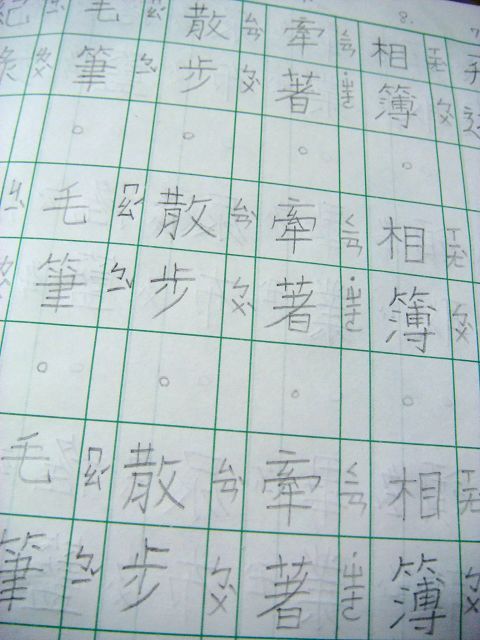 8.
相簿。相簿。相簿
ㄒㄧㄤˋ ㄅㄨˋ ㄒㄧㄤˋ ㄅㄨˋ ㄒㄧㄤˋ ㄅㄨˋ
牽著。牽著。牽著
ㄑㄧㄢ ˙ㄓㄜ ㄑㄧㄢ ˙ㄓㄜ ㄑㄧㄢ ˙ㄓㄜ
散步。散步。散步
ㄙㄢˋ ㄅㄨˋ ㄙㄢˋ ㄅㄨˋ ㄙㄢˋ ㄅㄨˋ
毛筆。毛筆。毛筆
ㄇㄠˊ ㄅㄧˇ ㄇㄠˊ ㄅㄧˇ ㄇㄠˊ ㄅㄧˇ